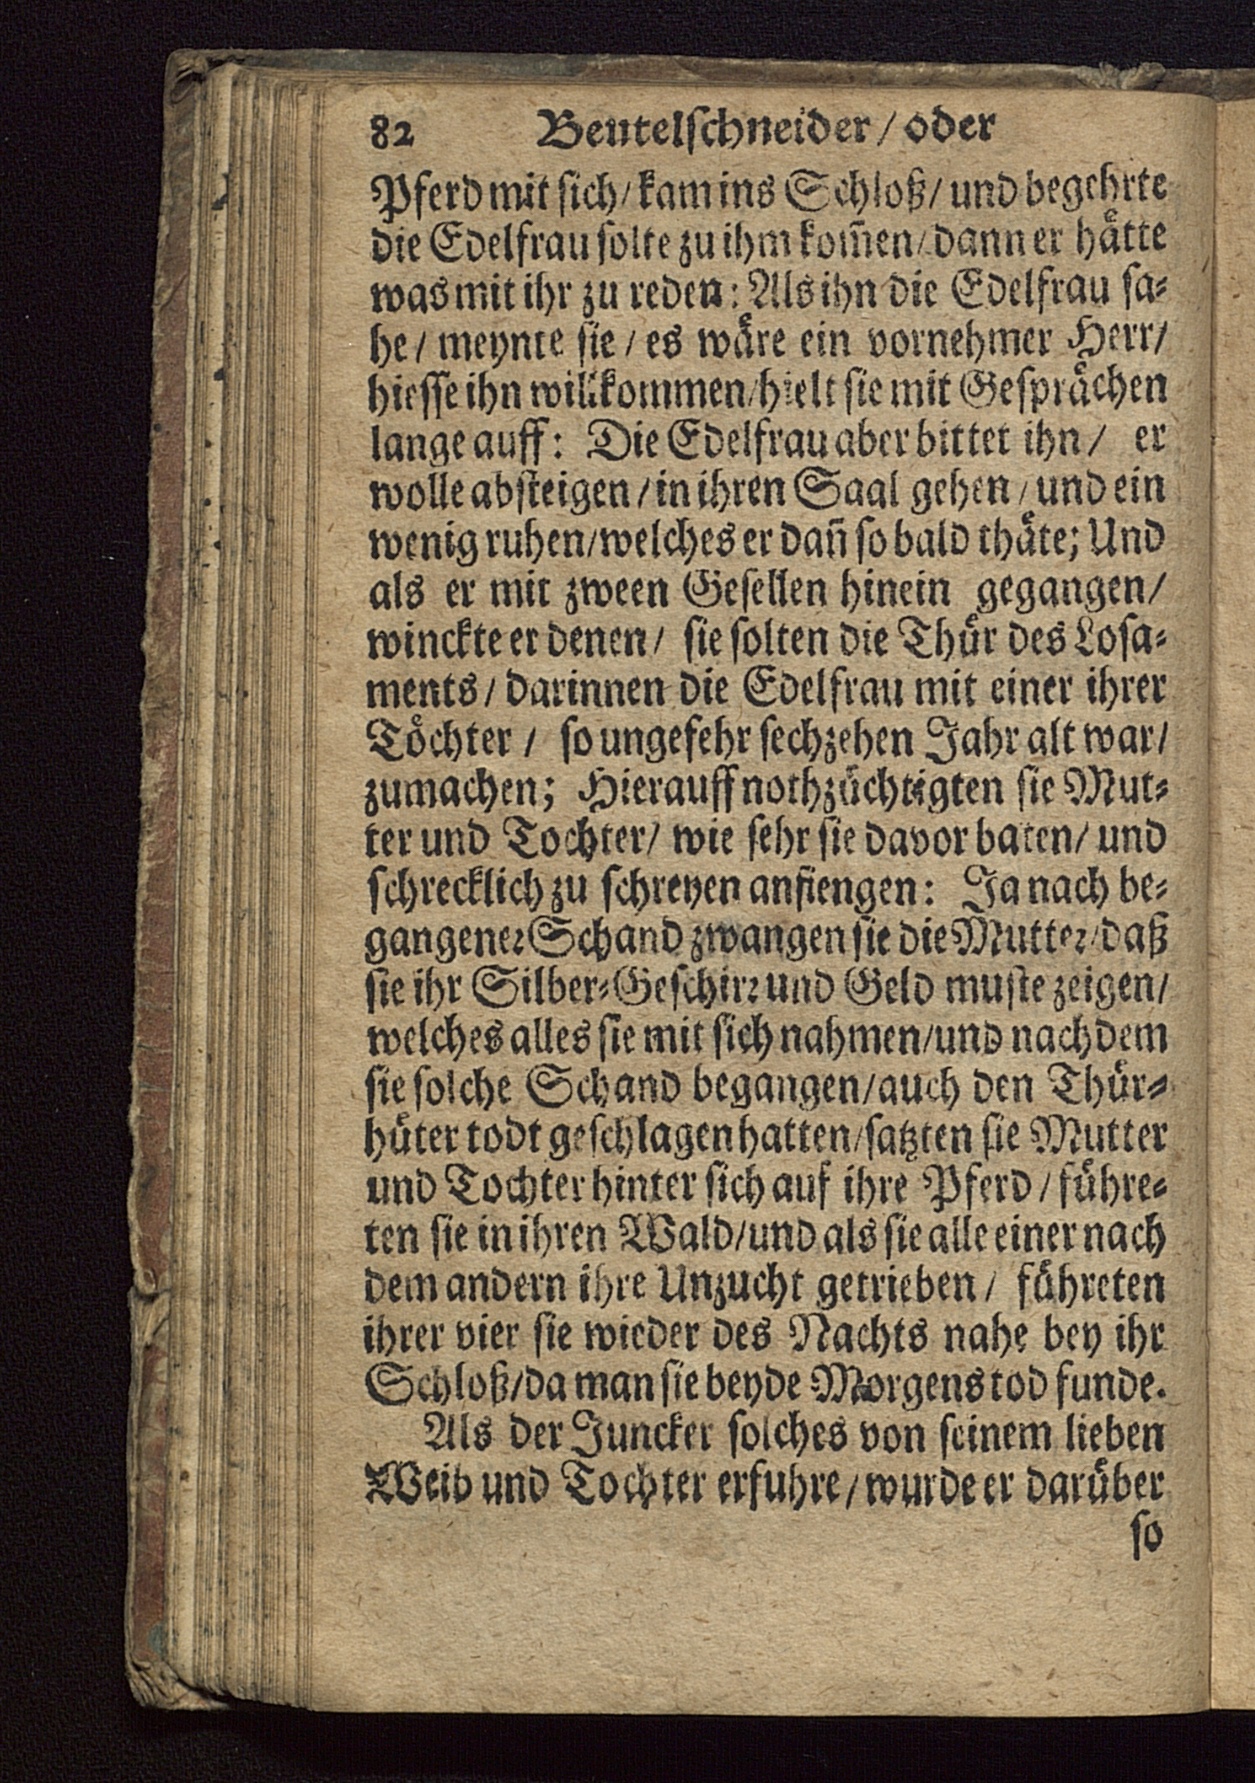 82 Beutelschneider / oder
Pferd mit sich / kam ins Schloß / und begehrte
die Edelfrau solte zu ihm kom̃en / dann er hätte
was mit ihr zu reden: Als ihn die Edelfrau sa-
he / meynte sie / es wäre ein vornehmer Herr /
hiesse ihn willkommen / hielt sie mit Gesprächen
lange auff: Die Edelfrau aber bittet ihn / er
wolle absteigen / in ihren Saal gehen / und ein
wenig ruhen / welches er dañ so bald thäte; Und
als er mit zween Gesellen hinein gegangen /
winckte er denen / sie solten die Thür des Losa-
ments / darinnen die Edelfrau mit einer ihrer
Töchter / so ungefehr sechzehen Jahr alt war /
zumachen; Hierauff nothzüchtigten sie Mut-
ter und Tochter / wie sehr sie davor baten / und
schrecklich zu schreyen anfiengen: Ja nach be-
gangener Schand zwangen sie die Mutter / daß
sie ihr Silber-Geschirr und Geld muste zeigen /
welches alles sie mit sich nahmen / und nachdem
sie solche Schand begangen / auch den Thür-
hüter todt geschlagen hatten / satzten sie Mutter
und Tochter hinter sich auf ihre Pferd / führe-
ten sie in ihren Wald / und als sie alle einer nach
dem andern ihre Unzucht getrieben / führeten
ihrer vier sie wieder des Nachts nahe bey ihr
Schloß / da man sie beyde Morgens tod funde.
Als der Juncker solches von seinem lieben
Weib und Tochter erfuhre / wurde er darüber
so